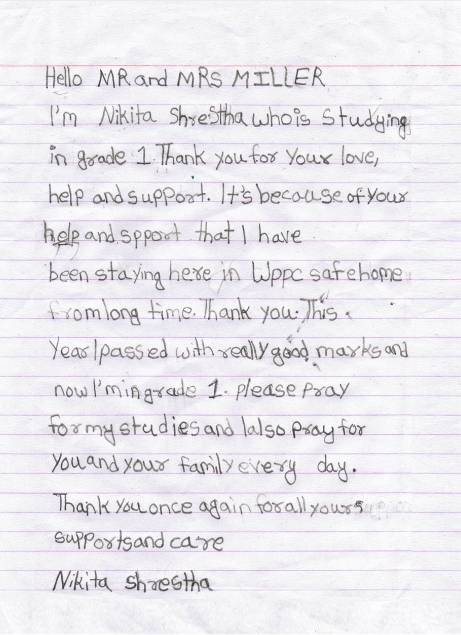 Hello MR and MRS MILLER
I'm Nikita Shrestha who is Studying
in grade 1. Thank you for your love,
help and support. It's because of your
help and spport that I have
been staying here in Wppc safe home
from long time. Thank you. This
Year I passed with really good marks and
now I'm in grade 1. please pray
for my studies and I also pray for
you and your family every day.
Thank you once again for all yours
supports and care
Nikita Shrestha